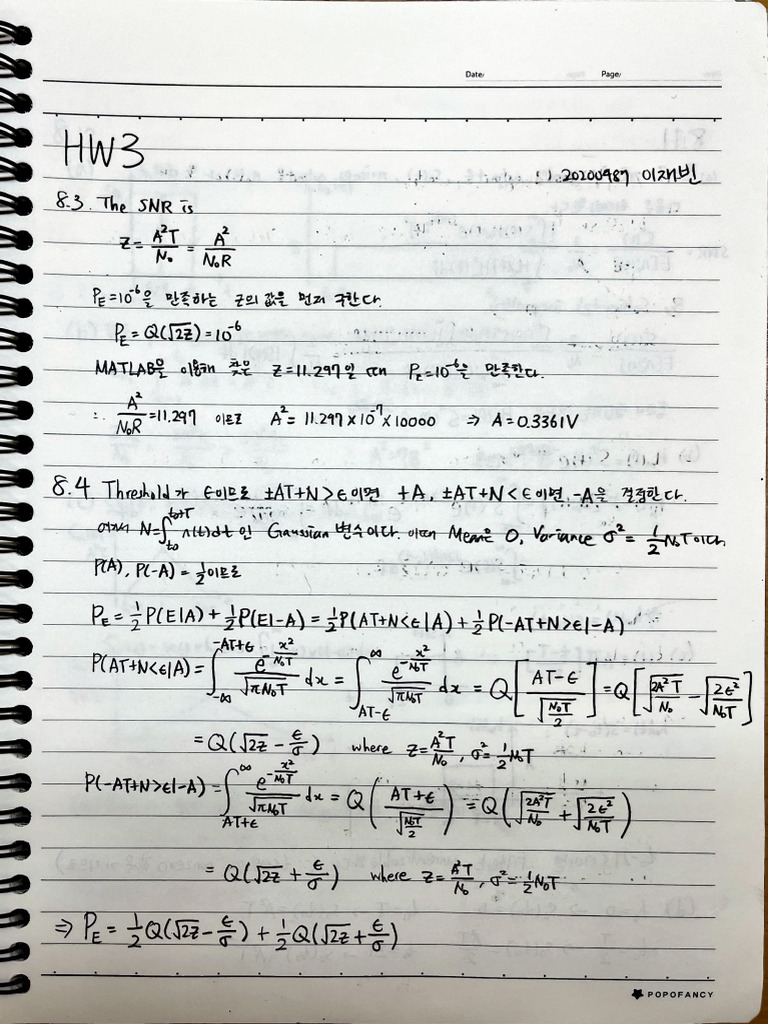 Date/ Page/
HW3
20200487 이재빈
8.3. The SNR is
z = A²T/N₀ = A²/(N₀R)
P_E=10⁻⁶을 만족하는 z의 값을 먼저 구한다.
P_E = Q(√(2z)) = 10⁻⁶
MATLAB을 이용해 찾은 z=11.297일 때 P_E=10⁻⁶을 만족한다.
∴ A²/(N₀R) = 11.297 이므로 A² = 11.297×10⁻⁷×10000 ⇒ A=0.3361V
8.4 Threshold가 ϵ이므로 ±AT+N>ϵ이면 +A, ±AT+N<ϵ이면 -A을 결정한다.
여기서 N=∫_{t₀}^{t₀+T} n(t)dt 인 Gaussian 변수이다. 이때 Mean은 0, Variance σ² = ½N₀T이다.
P(A), P(-A) = ½이므로
P_E = ½P(E|A) + ½P(E|-A) = ½P(AT+N<ϵ|A) + ½P(-AT+N>ϵ|-A)
P(AT+N<ϵ|A) = ∫_{-∞}^{-AT+ϵ} e^{-x²/(N₀T)}/√(πN₀T) dx = ∫_{AT-ϵ}^{∞} e^{-x²/(N₀T)}/√(πN₀T) dx = Q[(AT-ϵ)/√(N₀T/2)] = Q[√(2A²T/N₀) - √(2ϵ²/(N₀T))]
= Q(√(2z) - ϵ/σ) where z=A²T/N₀, σ²=½N₀T
P(-AT+N>ϵ|-A) = ∫_{AT+ϵ}^{∞} e^{-x²/(N₀T)}/√(πN₀T) dx = Q((AT+ϵ)/√(N₀T/2)) = Q(√(2A²T/N₀) + √(2ϵ²/(N₀T)))
= Q(√(2z) + ϵ/σ) where z=A²T/N₀, σ²=½N₀T
⇒ P_E = ½Q(√(2z) - ϵ/σ) + ½Q(√(2z) + ϵ/σ)
POPOFANCY